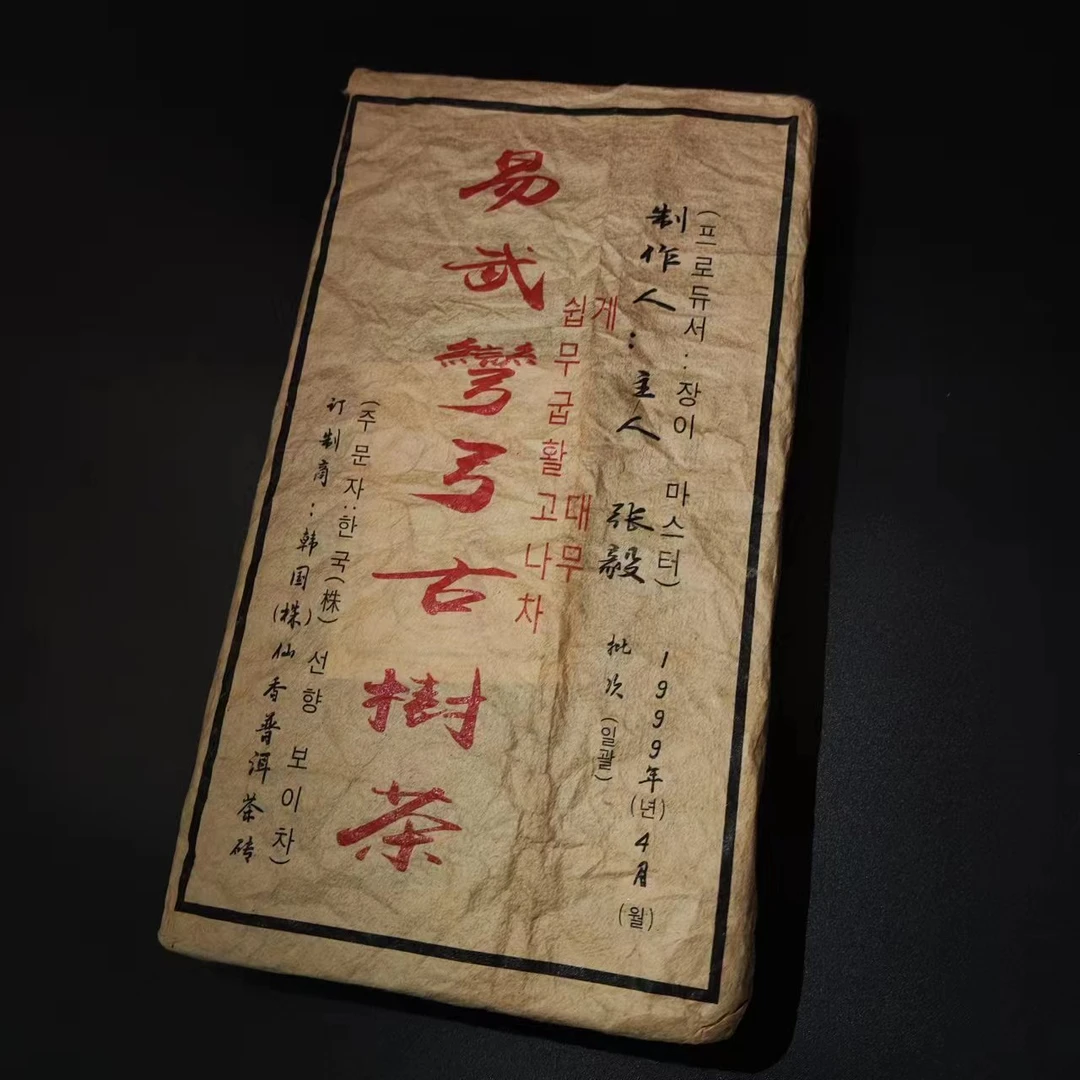 (프로듀서:장이 마스터)
制作人:主人 张毅
1999年(년)4月(월)
批次(일괄)
계 대무
쉽무굽활고나차
易武彎弓古樹茶
(주문자:한국(株)선향 보이차)
订制商:韩国(株)仙香普洱茶砖